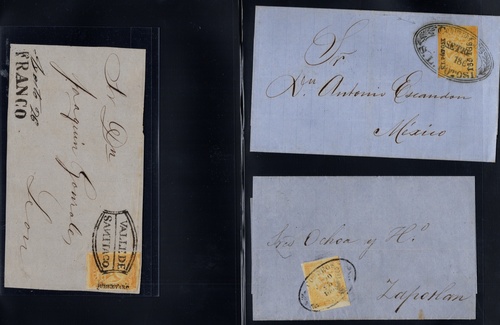 Agosto 26
FRANCO
Sr. Dn
Joaquin Gonzales
Leon
VALLE DE
SANTIAGO
Sr
Dn. Antonio Escandon
México
Sres Ochoa y Hº
Zapotlan